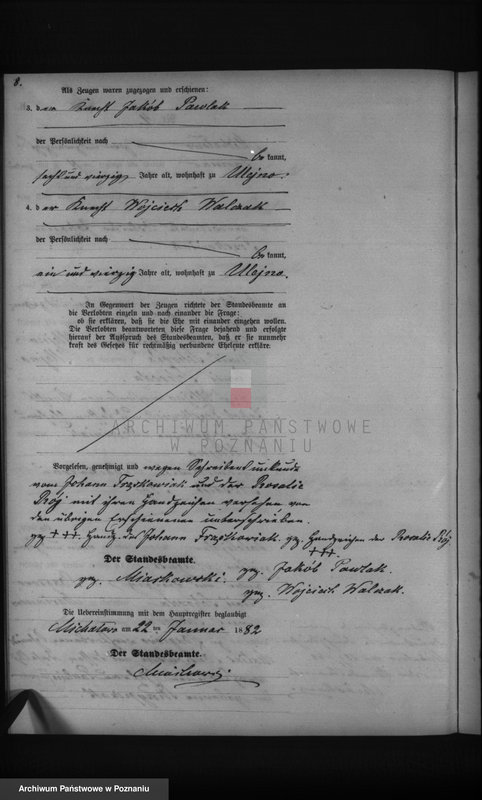 8.
Als Zeugen waren zugezogen und erschienen:
3. der Knecht Jakób Pawlak
der Persönlichkeit nach
be kannt,
sechs und vierzig Jahre alt, wohnhaft zu Ulejno.
4. der Knecht Wojciech Walczak
der Persönlichkeit nach
be kannt,
ein und vierzig Jahre alt, wohnhaft zu Ulejno.
In Gegenwart der Zeugen richtete der Standesbeamte an
die Verlobten einzeln und nach einander die Frage:
ob sie erklären, daß sie die Ehe mit einander eingehen wollen.
Die Verlobten beantworteten diese Frage bejahend und erfolgte
hierauf der Ausspruch des Standesbeamten, daß er sie nunmehr
kraft des Gesetzes für rechtmäßig verbundene Eheleute erkläre.
ARCHIWUM PAŃSTWOWE
W POZNANIU
Vorgelesen, genehmigt und wegen Schreibensunkunde
vom Johann Frąszkowiak und der Rosalie
Rój mit ihren Handzeichen versehen von
den übrigen Erschienenen unterschrieben.
gez +++. Handz. des Johann Frąszkowiak. gez. Handzeichen der Rosalie Rój
+++.
Der Standesbeamte.
gez. Jakób Pawlak.
gez. Miaskowski.
gez. Wojciech Walczak.
Die Uebereinstimmung mit dem Hauptregister beglaubigt
am 22 ten Januar 1882
Der Standesbeamte.
Miaskowski
Archiwum Państwowe w Poznaniu